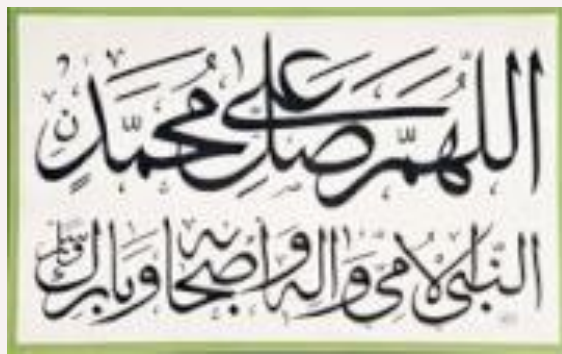 اللهمّ صلّ على محمّدٍ ن
النّبي الامّي واله واصحابه وبارك وسلّم